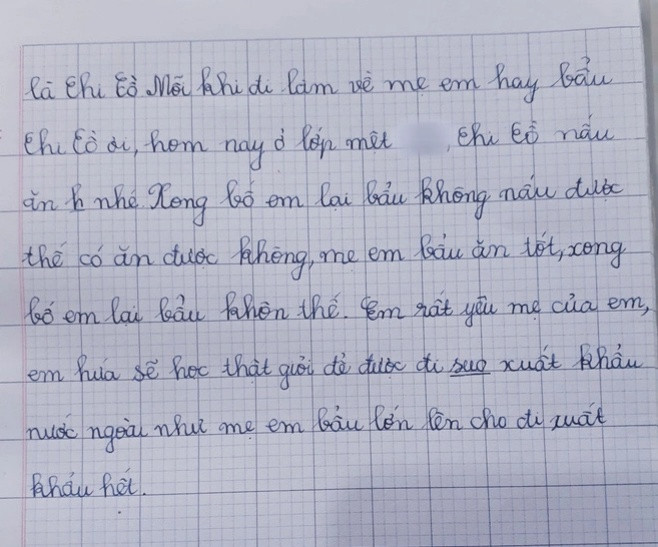 là Chi Cồ Mỗi khi đi làm về mẹ em hay bẩu
Chi Cồ ơi, hom nay ở lớp mệt , Chi Cồ nấu
ăn h nhé Xong bố em lại bẩu không nấu được
thế có ăn được không, mẹ em bẩu ăn tốt, xong
bố em lại bẩu khôn thế. Em rất yêu mẹ của em,
em hứa sẽ học thật giỏi để được đi suo xuất khẩu
nước ngoài như mẹ em bẩu lớn lên cho đi xuất
khẩu hết.